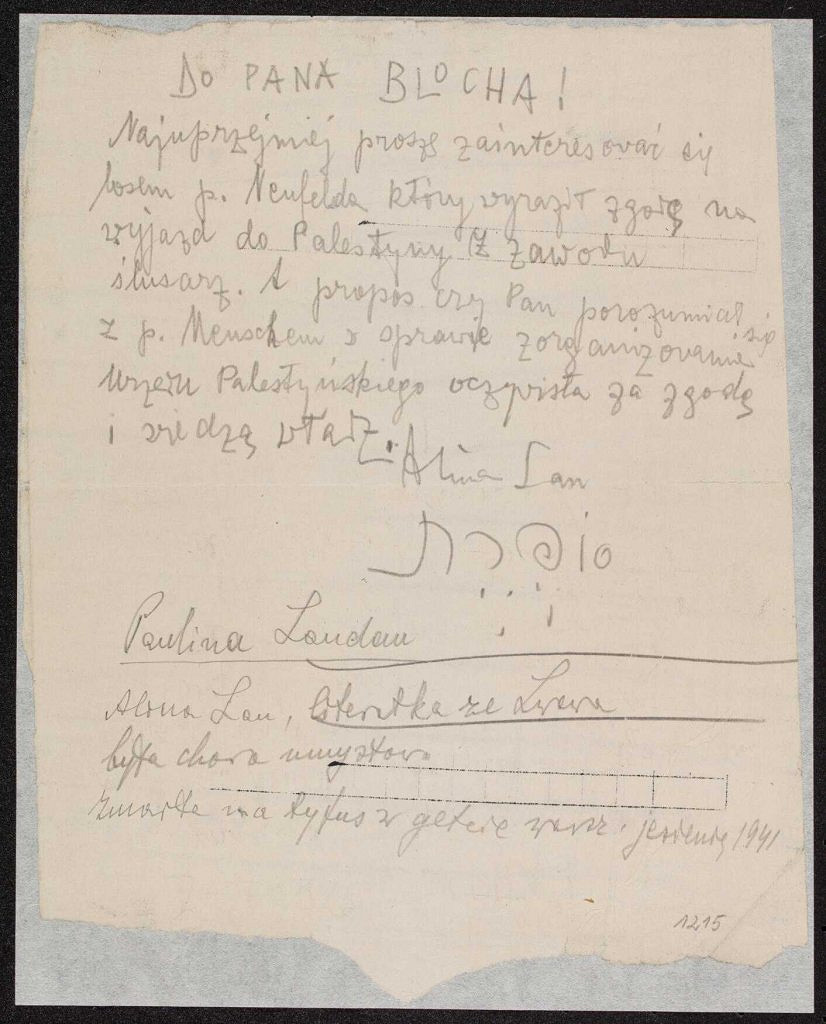 DO PANA BLOCHA!
Najuprzejmiej proszę zainteresować się
losem p. Neufelda który wyraził zgodę na
wyjazd do Palestyny z zawodu
ślusarz. A propos czy Pan porozumiał się
z p. Menschem w sprawie zorganizowania
Urzędu Palestyńskiego oczywista za zgodą
i wiedzą władz.
Alina Lan
Paulina Landau
Alina Lan, literatka ze Lwowa
była chora umysłowo
zmarła na tyfus w getcie warsz. jesienią 1941
1215